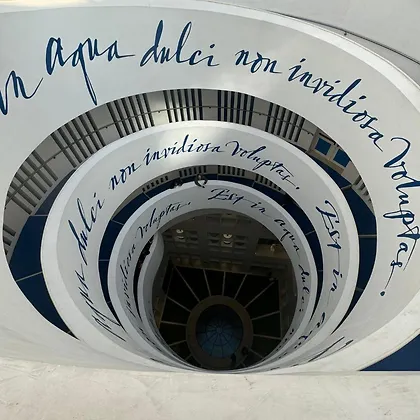 in aqua dulci non invidiosa voluptas.
aqua dulci non invidiosa voluptas. Est in a
invidiosa voluptas. Est in aqua dulci